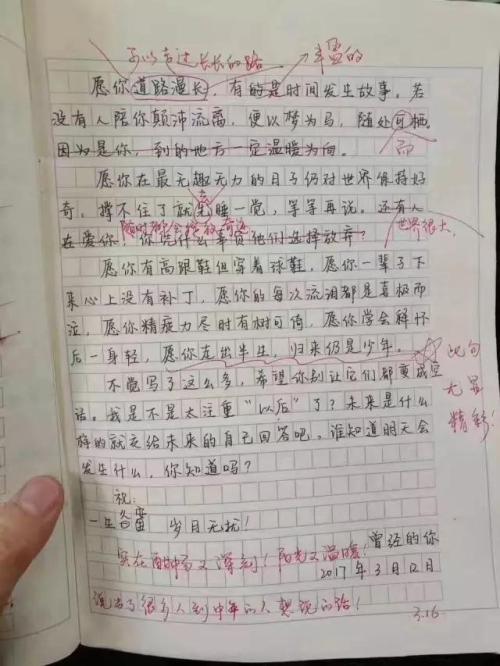 可以走过长长的路
丰盈的
愿你道路漫长,有的是时间发生故事。若
没有人陪你颠沛流离,便以梦为马,随处可栖。
而
因为是你,到的地方一定温暖为向。
愿你在最无趣无力的日子仍对世界保持好
奇,撑不住了就先睡一觉,等等再说。还有人
在爱你,你凭什么事负他们选择放弃?
世界很大
愿你有高跟鞋但穿着球鞋,愿你一辈子下
来心上没有补丁,愿你的每次流泪都是喜极而
泣,愿你精疲力尽时有树可倚,愿你学会释怀
后一身轻,愿你走出半生,归来仍是少年。
此句
尤显
精彩!
不觉写了这么多,希望你别让它们都变成空
话。我是不是太注重“以后”了?未来是什么
样的就交给未来的自己回答吧。谁知道明天会
发生什么,你知道吗?
祝:
一生备蕾 岁月无扰!
曾经的你
实在 又深刻!阳光又温暖!
2017年3月12日
说出了很多人到中年的人想说的话!
3.16